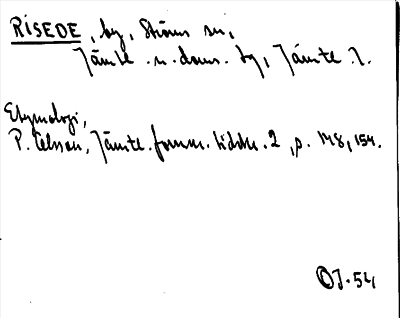 RISEDE, by, Ströms sn,
Jämtl. n. doms. by, Jämtl. l.
Etymologi,
P. Olsson, Jämtl. fornm. tidskr. 2, p. 148, 154.
OJ. 54